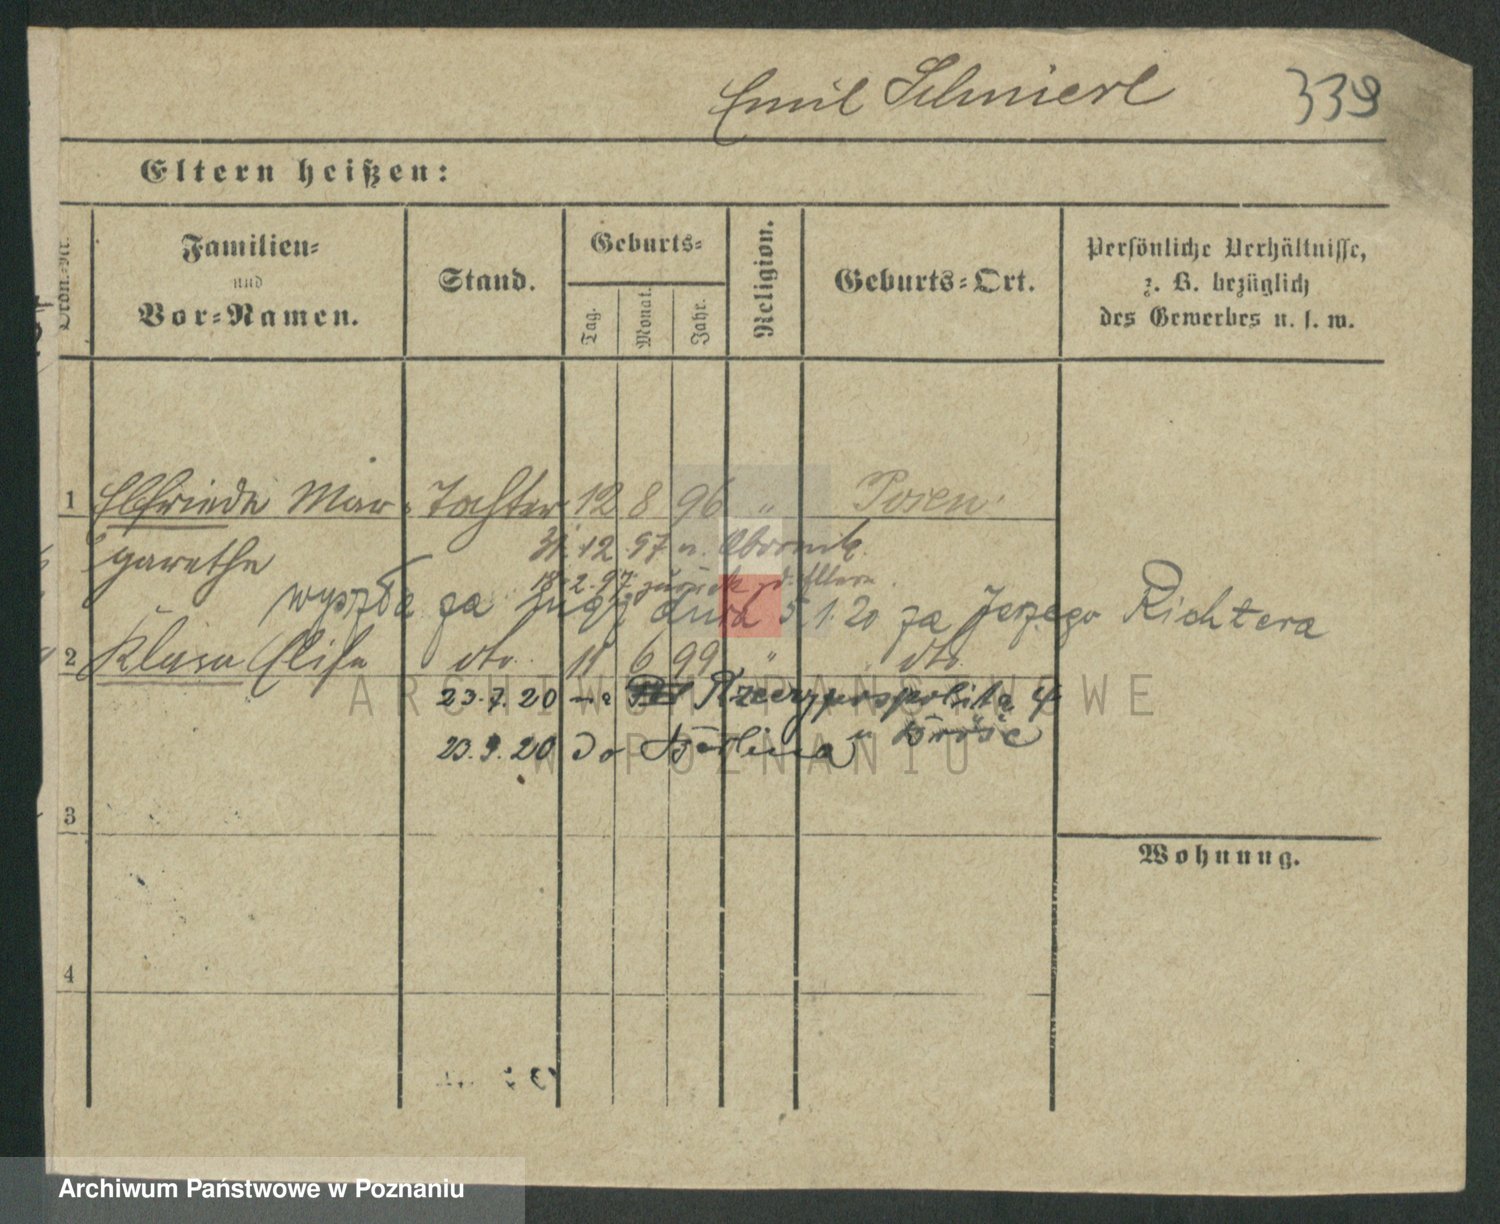 Emil Schmierl 339
Eltern heißen:
Ordn.-Nr.
Familien-
und
Vor-Namen.
Stand.
Geburts-
Tag.
Monat.
Jahr.
Religion.
Geburts-Ort.
Persönliche Verhältnisse,
z. B. bezüglich
des Gewerbes u. s. w.
1 Elfriede Mar- Tochter 12 8 96 " Posen.
garethe
31.12.97 n. Obornik.
18.2.97 zurück z. d. Eltern.
wyszła za mąż dnia 5.1.20 za Jerzego Richtera
2 Klara Elise dto. 11 6 99 " dto.
23.7.20 Rzeczypospolita 4
23.9.20 do Berlina u
3
Wohnung.
4
ARCHIWUM PAŃSTWOWE
W POZNANIU
Archiwum Państwowe w Poznaniu